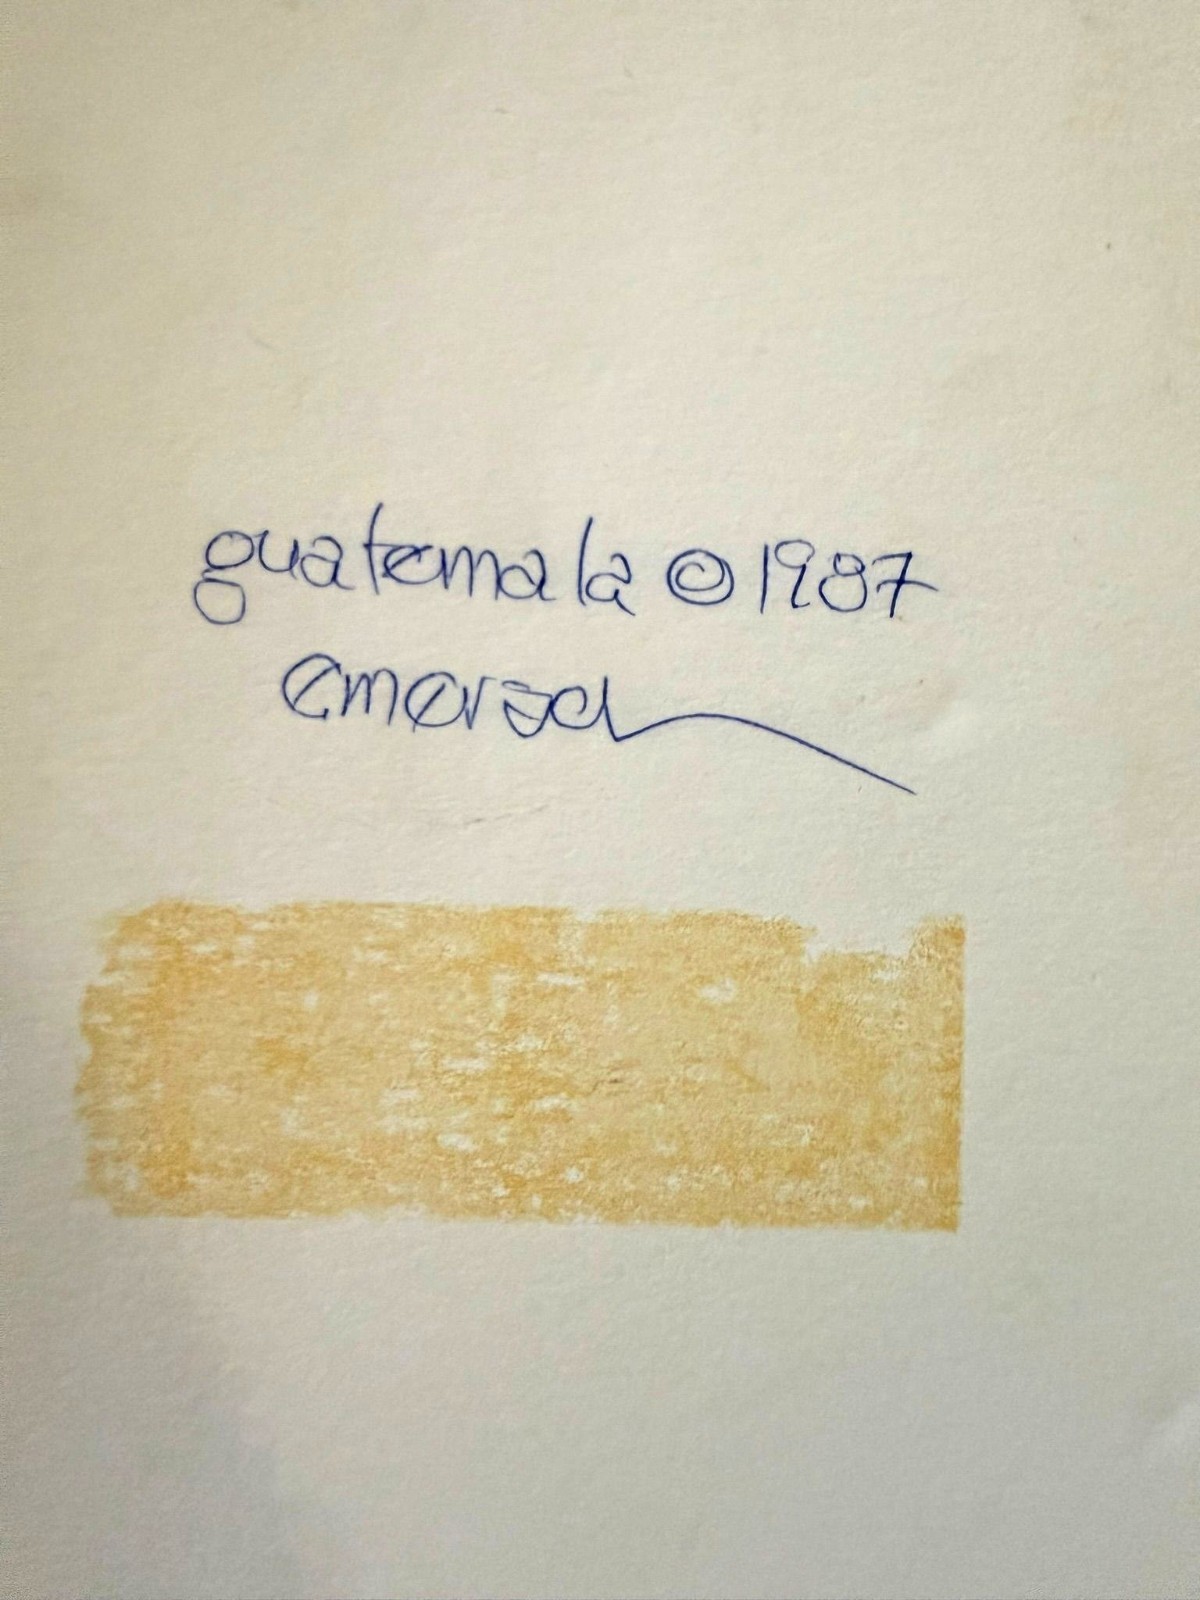 guatemala © 1987
emerson